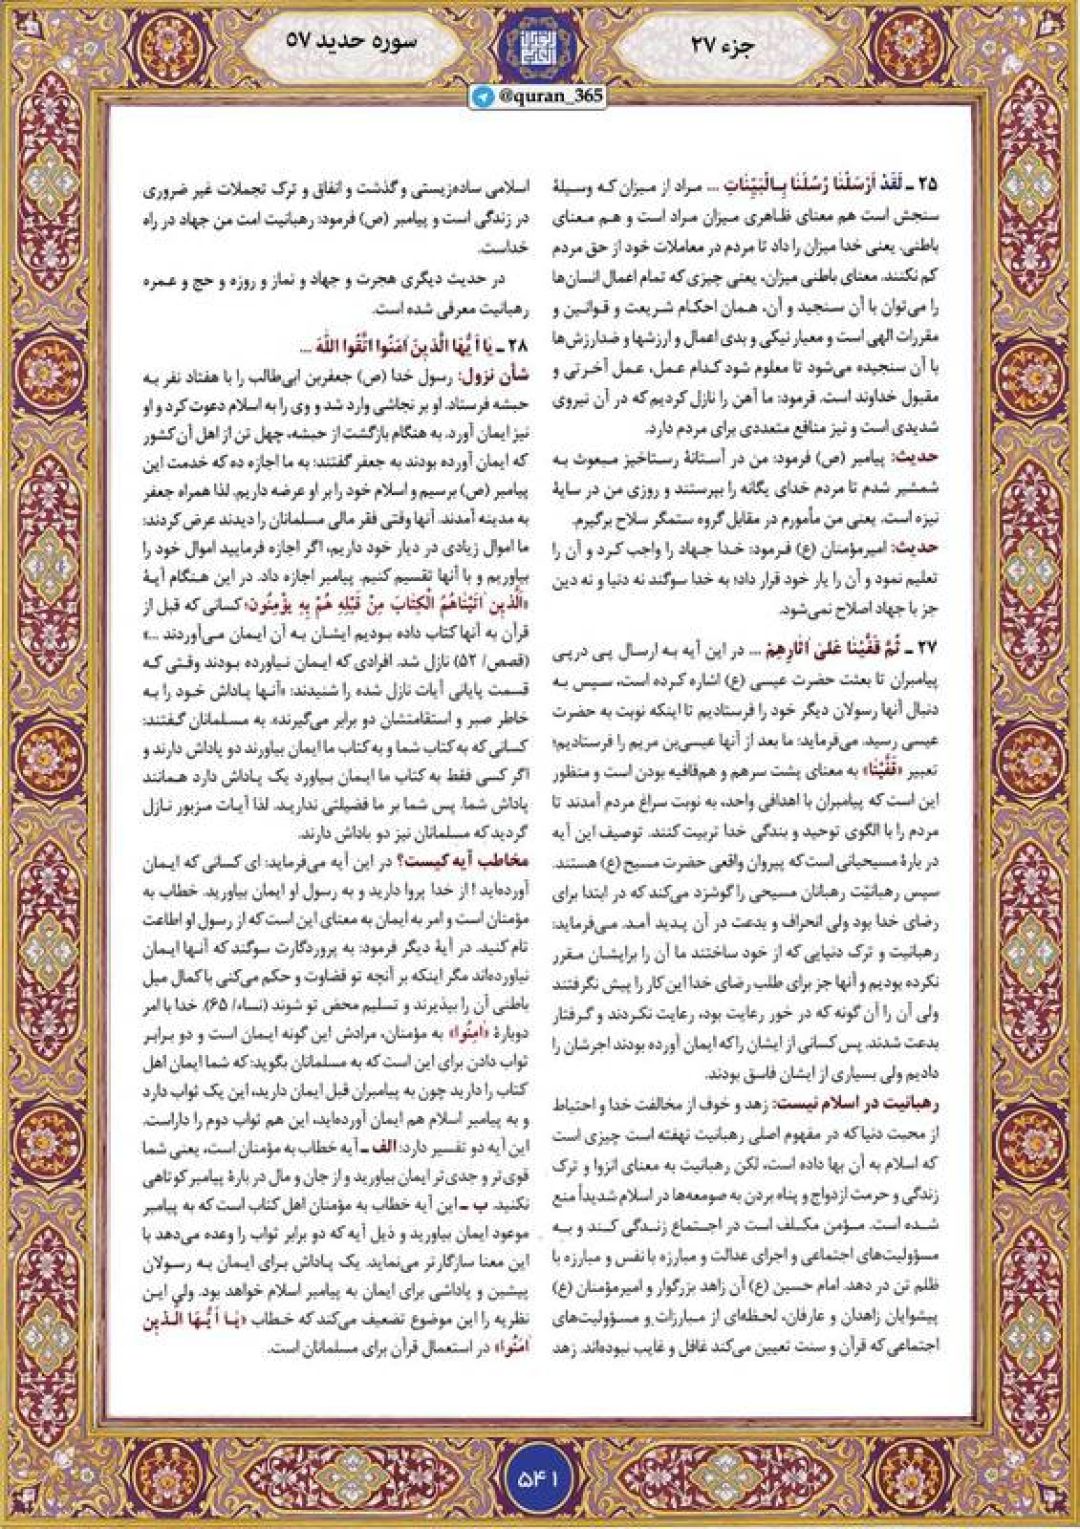 جزء ۲۷
سوره حدید ۵۷
@quran_365
۲۵ ـ لَقَدْ اَرْسَلْنَا رُسُلَنَا بِالْبَيِّنَاتِ ... مراد از میزان که وسیلهٔ
سنجش است هم معنای ظاهری میزان مراد است و هم معنای
باطنی. یعنی خدا میزان را داد تا مردم در معاملات خود از حق مردم
کم نکنند. معنای باطنی میزان، یعنی چیزی که تمام اعمال انسان‌ها
را می‌توان با آن سنجید و آن، همان احکام شریعت و قوانین و
مقررات الهی است و معیار نیکی و بدی اعمال و ارزشها و ضدارزش‌ها
با آن سنجیده می‌شود تا معلوم شود کدام عمل، عمل آخرتی و
مقبول خداوند است. فرمود: ما آهن را نازل کردیم که در آن نیروی
شدیدی است و نیز منافع متعددی برای مردم دارد.
حدیث: پیامبر (ص) فرمود: من در آستانهٔ رستاخیز مبعوث به
شمشیر شدم تا مردم خدای یگانه را بپرستند و روزی من در سایهٔ
نیزه است. یعنی من مأمورم در مقابل گروه ستمگر سلاح برگیرم.
حدیث: امیرمؤمنان (ع) فرمود: خدا جهاد را واجب کرد و آن را
تعلیم نمود و آن را یار خود قرار داد؛ به خدا سوگند نه دنیا و نه دین
جز با جهاد اصلاح نمی‌شود.
۲۷ ـ ثُمَّ قَفَّيْنَا عَلىٰ اٰثَارِهِمْ ... در این آیه به ارسال پی درپی
پیامبران تا بعثت حضرت عیسی (ع) اشاره کرده است، سپس به
دنبال آنها رسولان دیگر خود را فرستادیم تا اینکه نوبت به حضرت
عیسی رسید. می‌فرماید: ما بعد از آنها عیسی‌بن مریم را فرستادیم؛
تعبیر «قَفَّيْنَا» به معنای پشت سرهم و هم‌قافیه بودن است و منظور
این است که پیامبران با اهدافی واحد، به نوبت سراغ مردم آمدند تا
مردم را با الگوی توحید و بندگی خدا تربیت کنند. توصیف این آیه
دربارهٔ مسیحیانی است که پیروان واقعی حضرت مسیح (ع) هستند.
سپس رهبانیّت رهبانان مسیحی را گوشزد می‌کند که در ابتدا برای
رضای خدا بود ولی انحراف و بدعت در آن پدید آمد. می‌فرماید:
رهبانیت و ترک دنیایی که از خود ساختند ما آن را برایشان مقرر
نکرده بودیم و آنها جز برای طلب رضای خدا این کار را پیش نگرفتند
ولی آن را آن گونه که در خور رعایت بود، رعایت نکردند و گرفتار
بدعت شدند. پس کسانی از ایشان را که ایمان آورده بودند اجرشان را
دادیم ولی بسیاری از ایشان فاسق بودند.
رهبانیت در اسلام نیست: زهد و خوف از مخالفت خدا و احتیاط
از محبت دنیا که در مفهوم اصلی رهبانیت نهفته است چیزی است
که اسلام به آن بها داده است، لکن رهبانیت به معنای انزوا و ترک
زندگی و حرمت ازدواج و پناه بردن به صومعه‌ها در اسلام شدیداً منع
شده است. مؤمن مکلف است در اجتماع زندگی کند و به
مسؤولیت‌های اجتماعی و اجرای عدالت و مبارزه با نفس و مبارزه با
ظلم تن در دهد. امام حسین (ع) آن زاهد بزرگوار و امیرمؤمنان (ع)
پیشوایان زاهدان و عارفان، لحظه‌ای از مبارزات و مسؤولیت‌های
اجتماعی که قرآن و سنت تعیین می‌کند غافل و غایب نبوده‌اند. زهد
اسلامی ساده‌زیستی و گذشت و انفاق و ترک تجملات غیر ضروری
در زندگی است و پیامبر (ص) فرمود: رهبانیت امت من جهاد در راه
خداست.
در حدیث دیگری هجرت و جهاد و نماز و روزه و حج و عمره
رهبانیت معرفی شده است.
۲۸ ـ يَا اَيُّهَا الَّذينَ اٰمَنُوا اتَّقُوا اللّٰهَ ...
شأن نزول: رسول خدا (ص) جعفربن ابی‌طالب را با هفتاد نفر به
حبشه فرستاد. او بر نجاشی وارد شد و وی را به اسلام دعوت کرد و او
نیز ایمان آورد. به هنگام بازگشت از حبشه، چهل تن از اهل آن کشور
که ایمان آورده بودند به جعفر گفتند: به ما اجازه ده که خدمت این
پیامبر (ص) برسیم و اسلام خود را بر او عرضه داریم. لذا همراه جعفر
به مدینه آمدند. آنها وقتی فقر مالی مسلمانان را دیدند عرض کردند:
ما اموال زیادی در دیار خود داریم، اگر اجازه فرمایید اموال خود را
بیاوریم و با آنها تقسیم کنیم. پیامبر اجازه داد. در این هنگام آیهٔ
«اَلَّذينَ اٰتَيْنَاهُمُ الْكِتَابَ مِنْ قَبْلِهِ هُمْ بِهِ يُؤْمِنُونَ؛ کسانی که قبل از
قرآن به آنها کتاب داده بودیم ایشان به آن ایمان می‌آوردند ...»
(قصص/ ۵۲) نازل شد. افرادی که ایمان نیاورده بودند وقتی که
قسمت پایانی آیات نازل شده را شنیدند: «آنها پاداش خود را به
خاطر صبر و استقامتشان دو برابر می‌گیرند». به مسلمانان گفتند:
کسانی که به کتاب شما و به کتاب ما ایمان بیاورند دو پاداش دارند و
اگر کسی فقط به کتاب ما ایمان بیاورد یک پاداش دارد همانند
پاداش شما. پس شما بر ما فضیلتی ندارید. لذا آیات مزبور نازل
گردید که مسلمانان نیز دو پاداش دارند.
مخاطب آیه کیست؟ در این آیه می‌فرماید: ای کسانی که ایمان
آورده‌اید! از خدا پروا دارید و به رسول او ایمان بیاورید. خطاب به
مؤمنان است و امر به ایمان به معنای این است که از رسول او اطاعت
تام کنید. در آیهٔ دیگر فرمود: به پروردگارت سوگند که آنها ایمان
نیاورده‌اند مگر اینکه بر آنچه تو قضاوت و حکم می‌کنی با کمال میل
باطنی آن را بپذیرند و تسلیم محض تو شوند (نساء/ ۶۵). خدا با امر
دوبارهٔ «اٰمِنُوا» به مؤمنان، مرادش این گونه ایمان است و دو برابر
ثواب دادن برای این است که به مسلمانان بگوید: که شما ایمان اهل
کتاب را دارید چون به پیامبران قبل ایمان دارید، این یک ثواب دارد
و به پیامبر اسلام هم ایمان آورده‌اید، این هم ثواب دوم را داراست.
این آیه دو تفسیر دارد: الف ـ آیه خطاب به مؤمنان است، یعنی شما
قوی‌تر و جدی‌تر ایمان بیاورید و از جان و مال دربارهٔ پیامبر کوتاهی
نکنید. ب ـ این آیه خطاب به مؤمنان اهل کتاب است که به پیامبر
موعود ایمان بیاورید و ذیل آیه که دو برابر ثواب را وعده می‌دهد با
این معنا سازگارتر می‌نماید. یک پاداش برای ایمان به رسولان
پیشین و پاداشی برای ایمان به پیامبر اسلام خواهد بود. ولی این
نظریه را این موضوع تضعیف می‌کند که خطاب «يَا اَيُّهَا الَّذينَ
اٰمَنُوا» در استعمال قرآن برای مسلمانان است.
۵۴۱